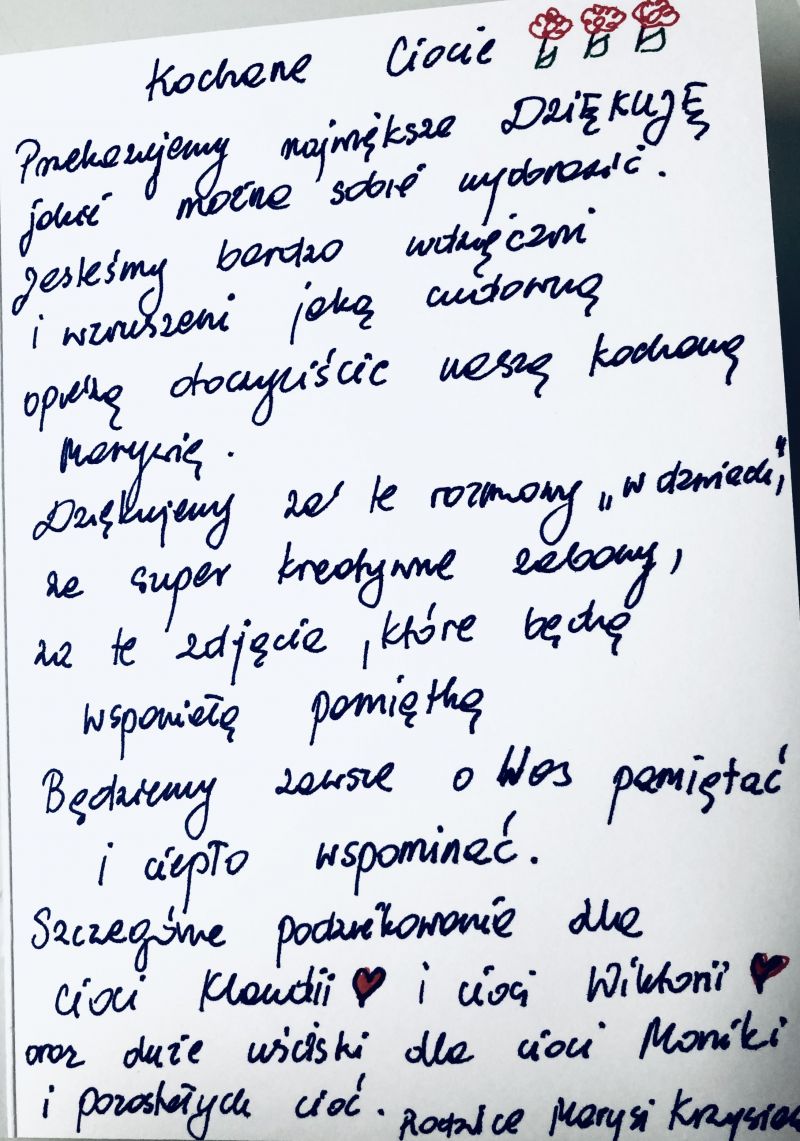 Kochane Ciocie
Przekazujemy największe DZIĘKUJĘ
jakie można sobie wyobrazić.
Jesteśmy bardzo wdzięczni
i wzruszeni jaką cudowną
opieką otoczyliście naszą kochaną
Marysię.
Dziękujemy za te rozmowy „w drzwiach",
za super kreatywne zabawy,
za te zdjęcia, które będą
wspaniałą pamiątką
Będziemy zawsze o Was pamiętać
i ciepło wspominać.
Szczególne podziękowanie dla
cioci Klaudii ❤ i cioci Wiktorii ❤
oraz duże uściski dla cioci Moniki
i pozostałych cioć. Rodzice Marysi